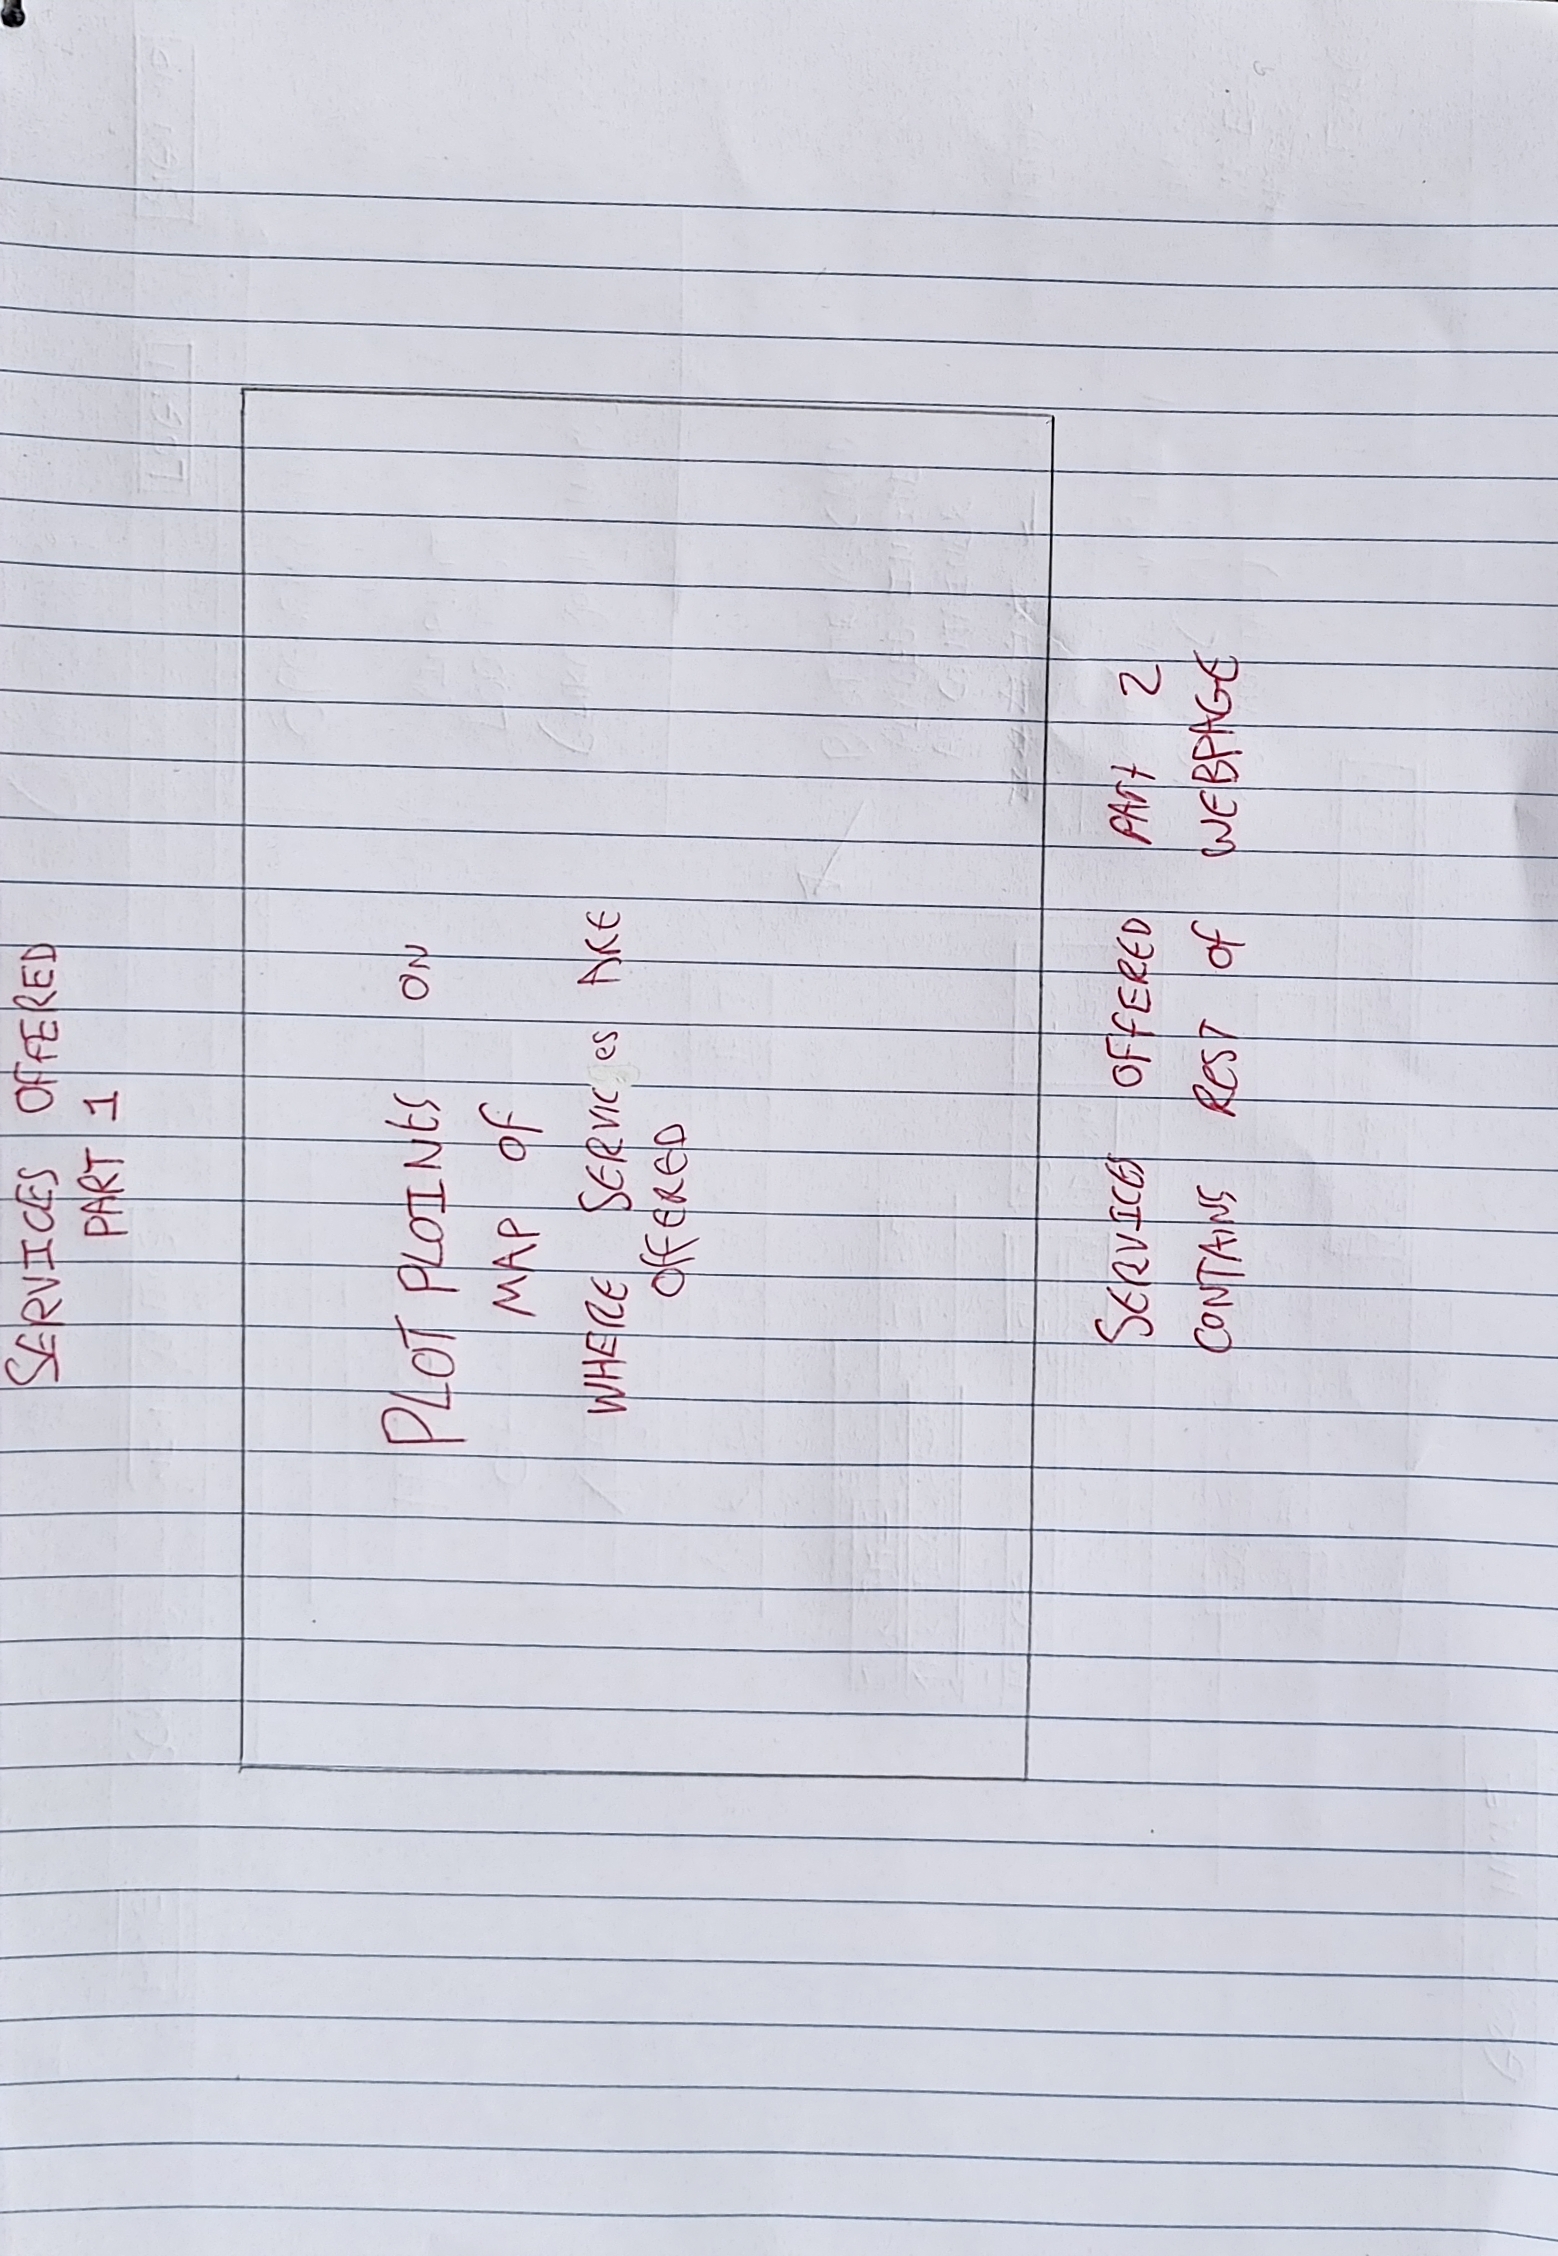 SERVICES OFFERED
PART 1
PLOT PLOINTS ON
MAP OF
WHERE SERVICES ARE
OFFERED
SERVICES OFFERED PART 2
CONTAINS REST OF WEBPAGE